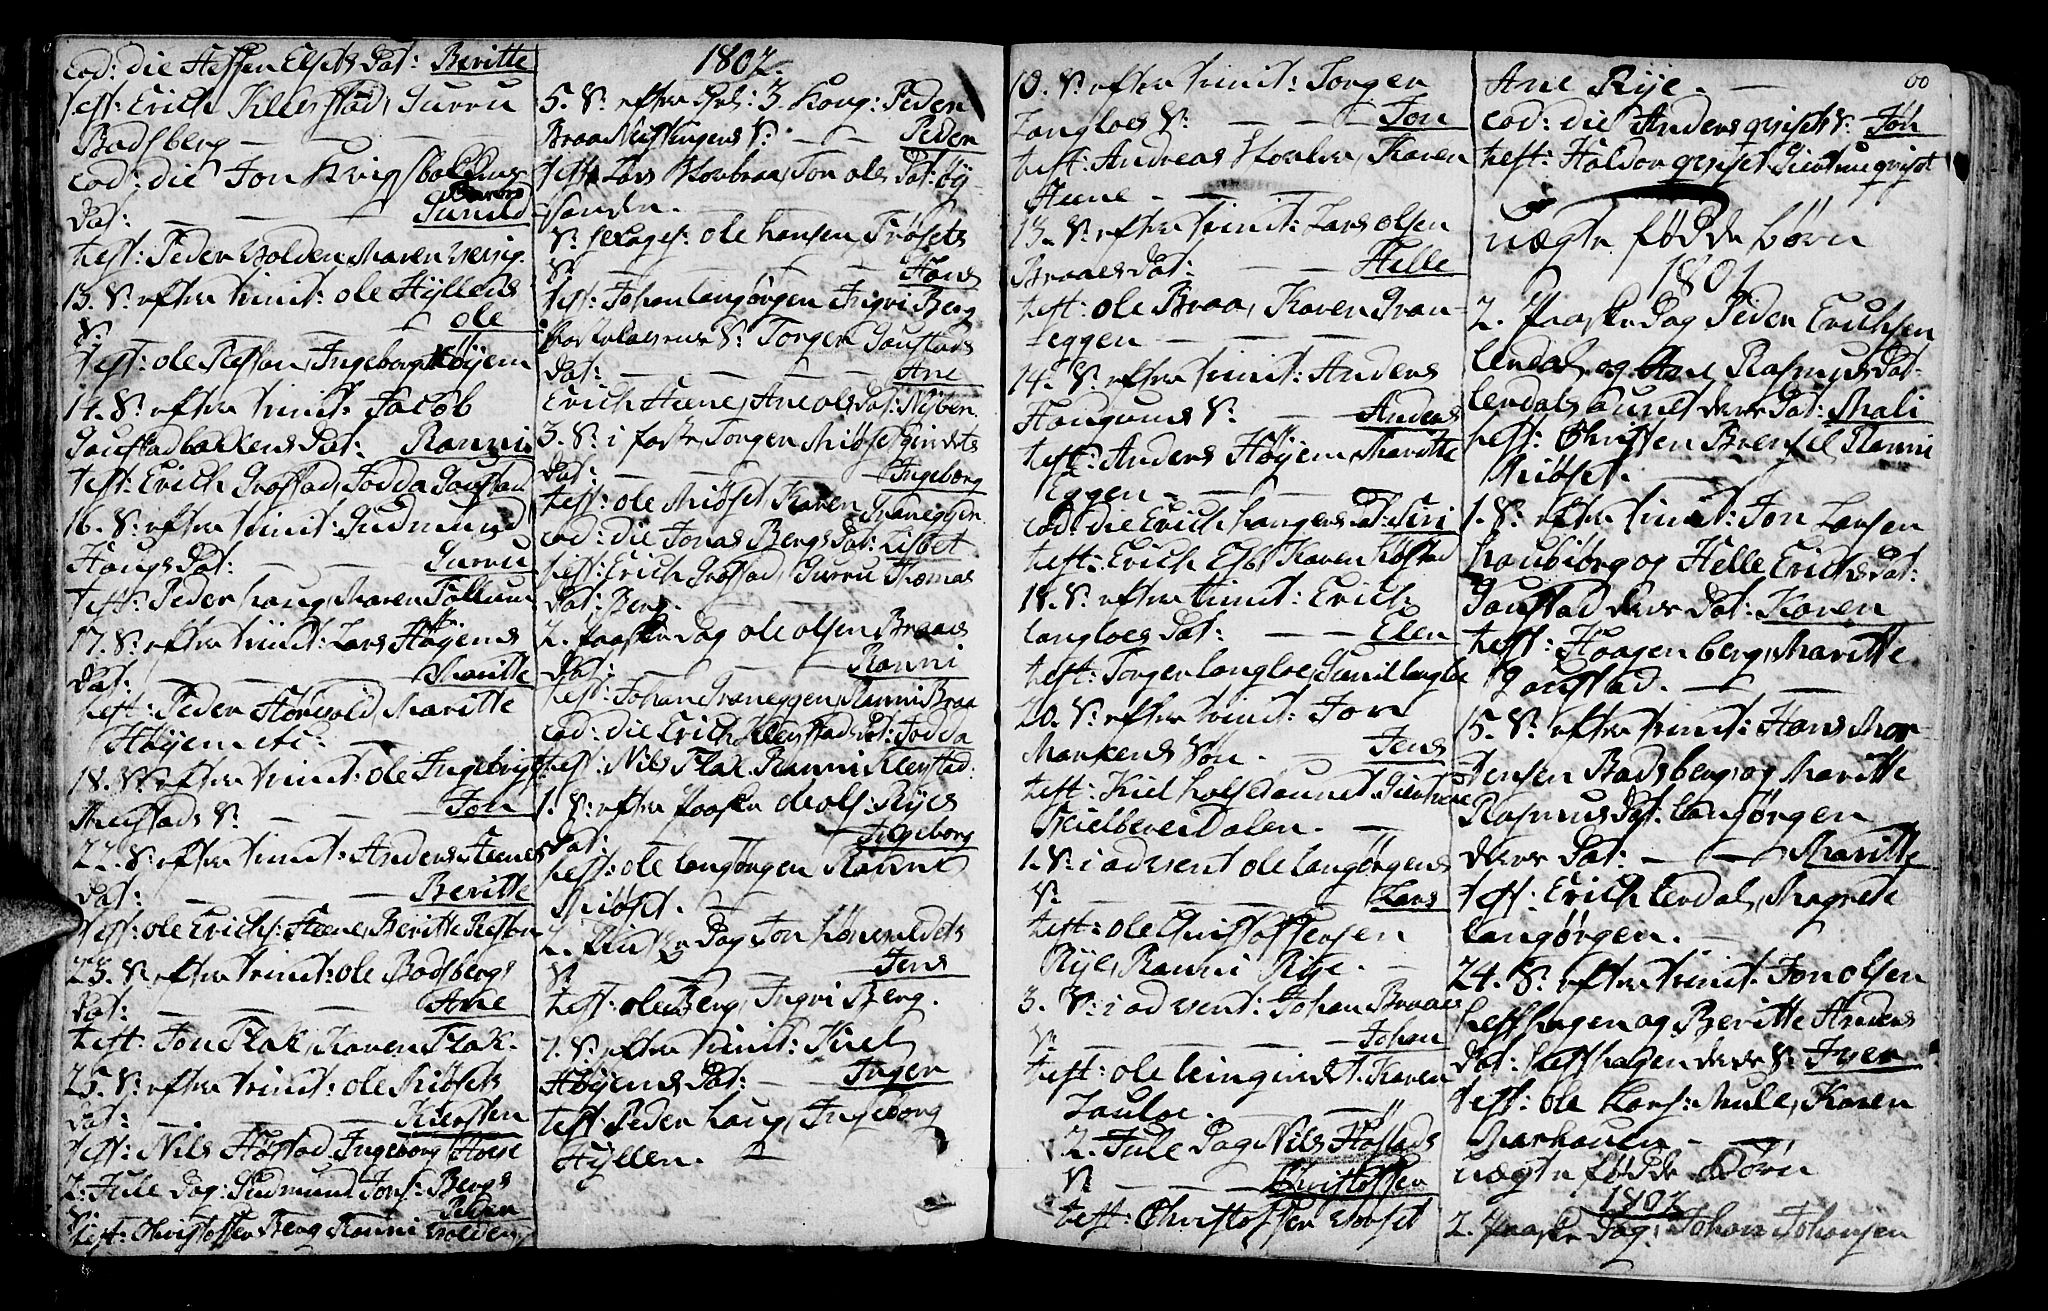 Eod: die Steffen Elsets Dat: Beritte
test: Erich Kleefstad, Gurru
Badsberg — —
eod: die Jon
Dat: — — — Gunild
test: Peder Volden, Maren
13. S: efter trinit: ole Hÿllens
S: — — — ole
test: ole Restan, Ingeborg Høÿem
14. S: efter trinit: Jacob
Gaustadbakkens Dat: Ranni
test: Erich Grøstad, Jodda Gaustad
16. S: efter trinit: Gudmund
Haugs Dat: — — Gurru
test: Peder haug, Maren Follum
17. S: efter trinit: Lars Høÿems
Dat: — — — Maritte
test: Peder Maritte
Høÿem etc: — —
18. S: efter trinit: ole Ingebrigts:
S: — — Jon
22. S: efter trinit: Anders Steenes
Dat: — — — Beritte
test: ole Erichs: Steene, Beritte Restan
23. S: efter trinit: ole Badsbergs
Dat: — — — Ane
test: Jon Flak, Karen Flak.
25. S: efter trinit: ole Miøsets
Dat: — — — Kiersten
test: Nils Høstad, Ingeborg
2. Jule Dag: Gudmund Jons: Bergs
S: Peder
test: Christoffer Berg, Ranni Volden
1802.
5. S: efter 3 Kong: Peder
Braa S: — — Peder
test: Lars Jon ols Dat: øÿ-
sanden. — — —
S: ole hansen Frøsets
S: — — — Hans
test: Johan langørgen, Ingri Berg
S: Torger Gaustads
Dat: — — — Ane
Erich Steene, Ane ols Dat:
3. S: i faste, Torger Miøset
Dat: — — — Ingeborg
test: ole Miøset, Karen Graneggen.
eod: die Jonas Bergs Dat: Lisbet
test: Erich Grøstad, Gurru Thomas
Dat: Berg. — —
2. paaske Dag ole olsen Braaes
Dat: — — — Ranni
test: Johan Graneggen, Ranni Braa
eod: die Erich Kleefstads Dat: Jodda
test: Nils Flak, Ranni Kleefstad.
1. S: efter paaske ole ols: Rÿes
Dat: — — — Ingeborg
test: ole langørgen, Ranni
Miøset. —
2. Dag Jon
S: — — — Jens
test: ole Berg, Ingri Berg.
7. S: efter trinit: Kiel
Høÿems Dat: — — Inger
test: Peder haug, Ingeborg
Hÿllen. —
10. S: efter trinit: Torger
Langloes S: — — Jon
test: Andreas Karen
Steene — — —
13. S: efter trinit: Lars olsen
Braaes Dat: — — Helle
test: ole Braa, Karen Gran-
eggen — — —
14. S: efter trinit: Anders
Haugums S: — — Anders
test: Anders Høÿem, Maritte
Eggen — — — —
eod: die Erich haugens Dat: Siri
test: Erich Karen Høstad
18. S: efter trinit: Erich
langloes Dat: — — Elen
test: Torger langloe, Gunil langloe
20. S: efter trinit: Jon
Markens Søn. — — Jens
test: Kiel
Dalen. —
1. S: i advent ole langørgens
S: — — — Lars
test: ole Christoffersen
Rÿe, Ranni Rÿe. —
3. S: i advent: Johan Braaes
S: — — — — Johan
test: ole Karen
Langloe. — — —
2. Jule Dag Nils Høstads
S: — — — Christoffer
test: Christoffer
60
Ane Rÿe. — —
eod: die Anders qvist S: Jon
test: Haldor qvist, qvist
uægte fødde børn
1801
2. paaske Dag Peder Erichsen
lerdal og Ane Rasmus Dat:
lerdals deres Dat: Mali
test: Christen Ranni
Miøset. — —
1. S: efter trinit: Jon Larsen
og Helle Erichs Dat:
Gaustad deres Dat: Karen
test: Haagen berg, Maritte
Gaustad. — —
15. S: efter trinit: Hans Mor-
tensen Badsberg og Maritte
Rasmus Dat: langørgen
deres Dat: — — Maritte
test: Erich lerdal, Magrete
langørgen. —
24. S: efter trinit. Jon olsen
og Beritte Anders
Dat: deres S: Iver
test: ole Lars: Mule, Karen
— —
uægte fødde børn
1802
2. paaske Dag: Johan Johansen